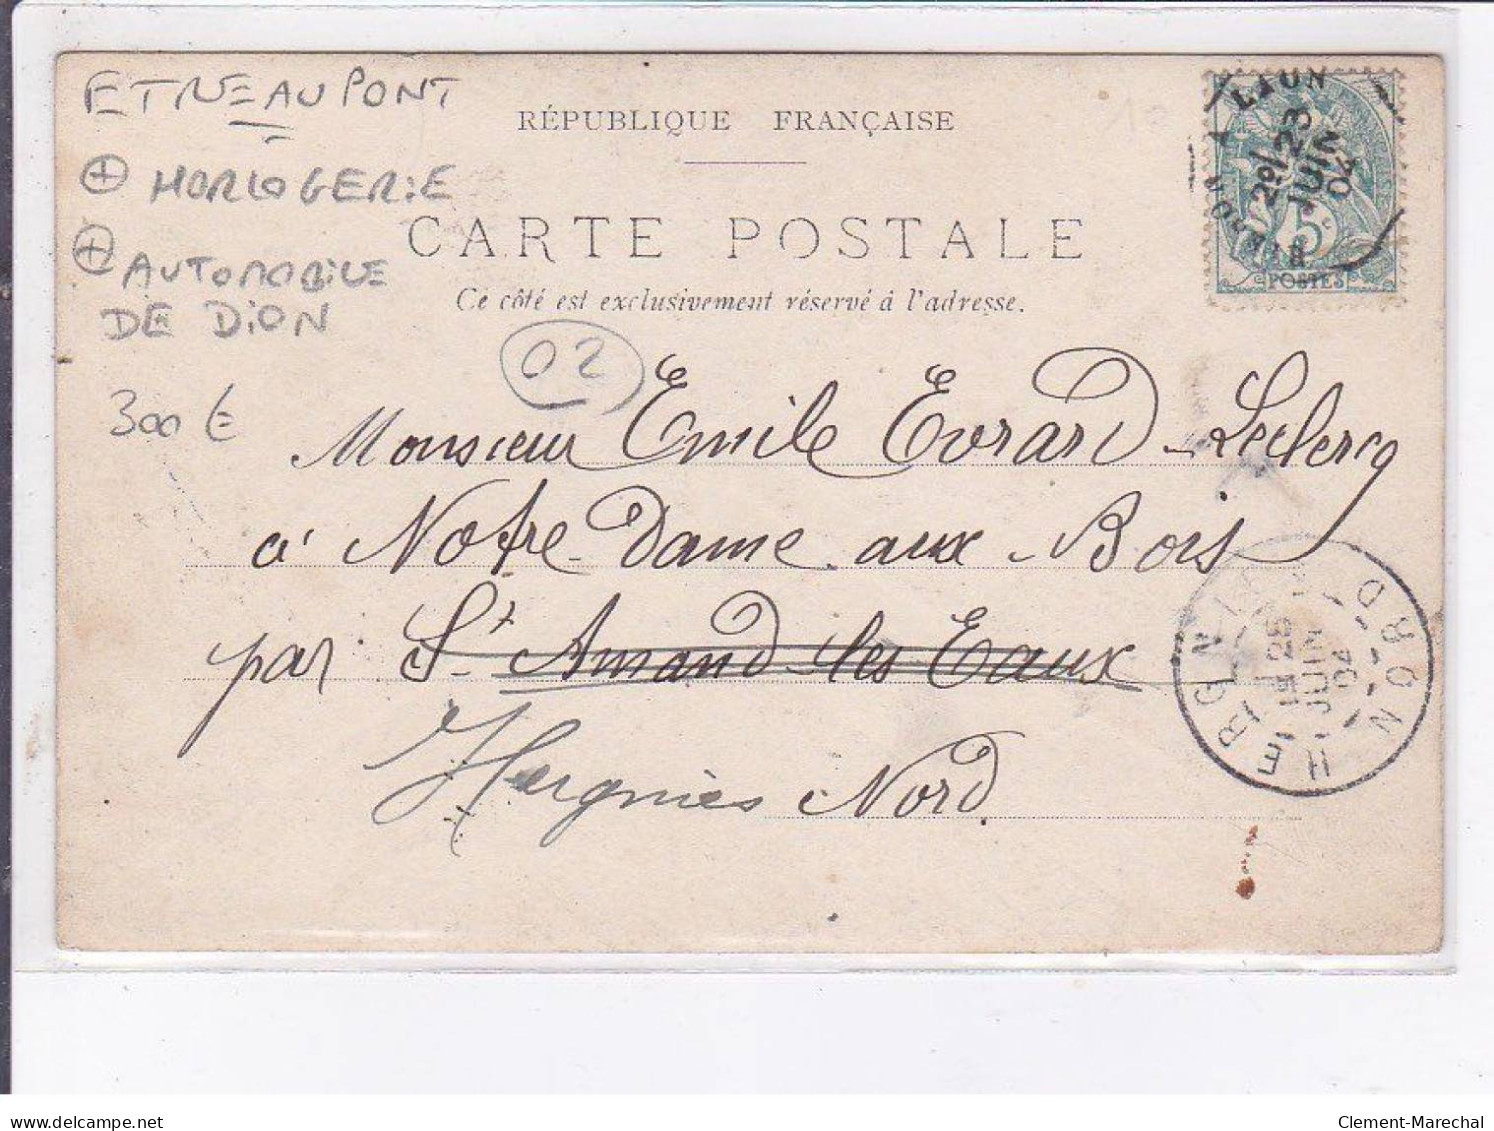 ETREAUPONT
+ HORLOGERIE
+ AUTOMOBILE
DE DION
300 €
02
RÉPUBLIQUE FRANÇAISE
CARTE POSTALE
Ce côté est exclusivement réservé à l'adresse.
HIRSON A LAON
23
JUIN
04
5
POSTES
Monsieur Emile Evrard-Leclercq
à Notre Dame aux Bois
par St Amand-les-Eaux
Hergnies Nord
HERGNIES
25
JUIN
04
NORD
delcampe.net
Clement-Marechal